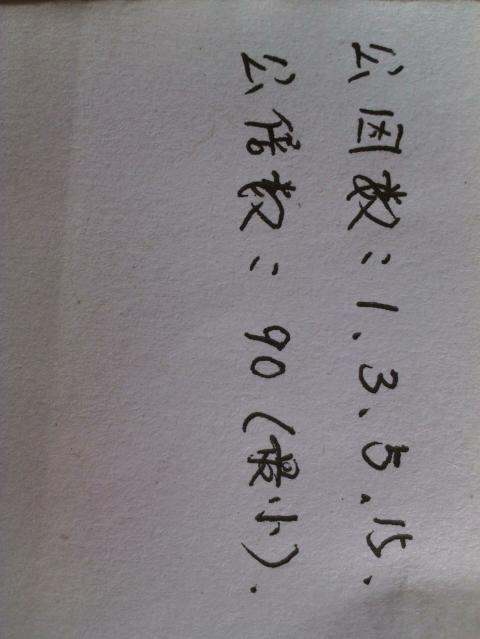 公因数：1、3、5、15.
公倍数： 90（最小）.